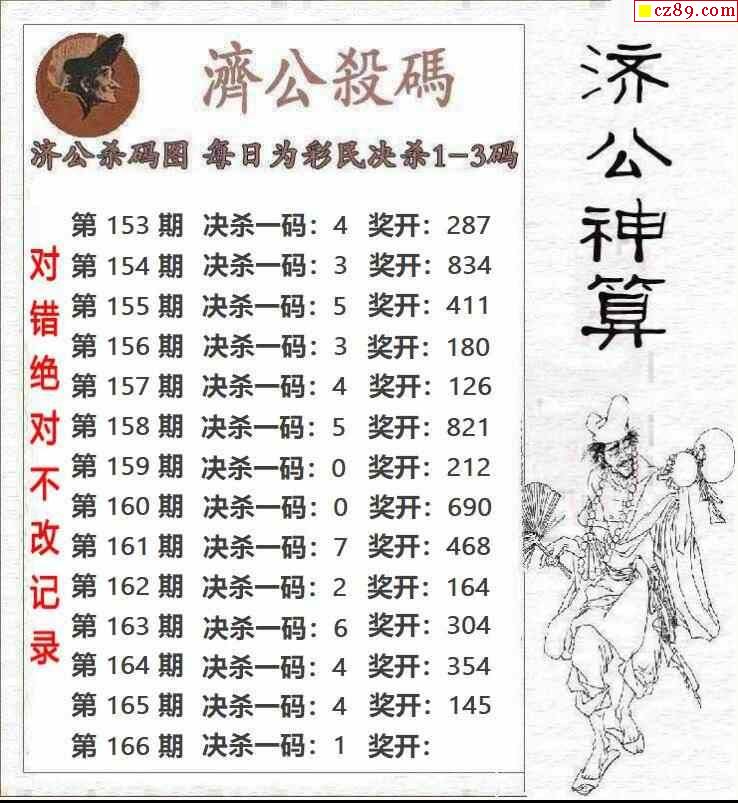 cz89.com
濟公殺碼
济公杀码图 每日为彩民决杀1-3码
第 153 期 决杀一码：4 奖开：287
第 154 期 决杀一码：3 奖开：834
第 155 期 决杀一码：5 奖开：411
第 156 期 决杀一码：3 奖开：180
第 157 期 决杀一码：4 奖开：126
第 158 期 决杀一码：5 奖开：821
第 159 期 决杀一码：0 奖开：212
第 160 期 决杀一码：0 奖开：690
第 161 期 决杀一码：7 奖开：468
第 162 期 决杀一码：2 奖开：164
第 163 期 决杀一码：6 奖开：304
第 164 期 决杀一码：4 奖开：354
第 165 期 决杀一码：4 奖开：145
第 166 期 决杀一码：1 奖开：
对错绝对不改记录
济公神算